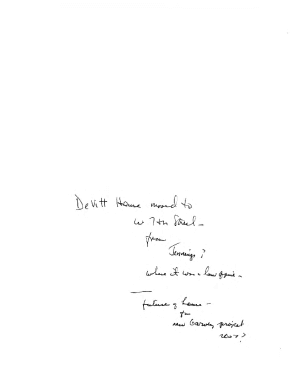 DeVitt House moved to
W 7th Street -
from
Jennings?
where it was a law office -
future of house -
for
new Garvey project
200?